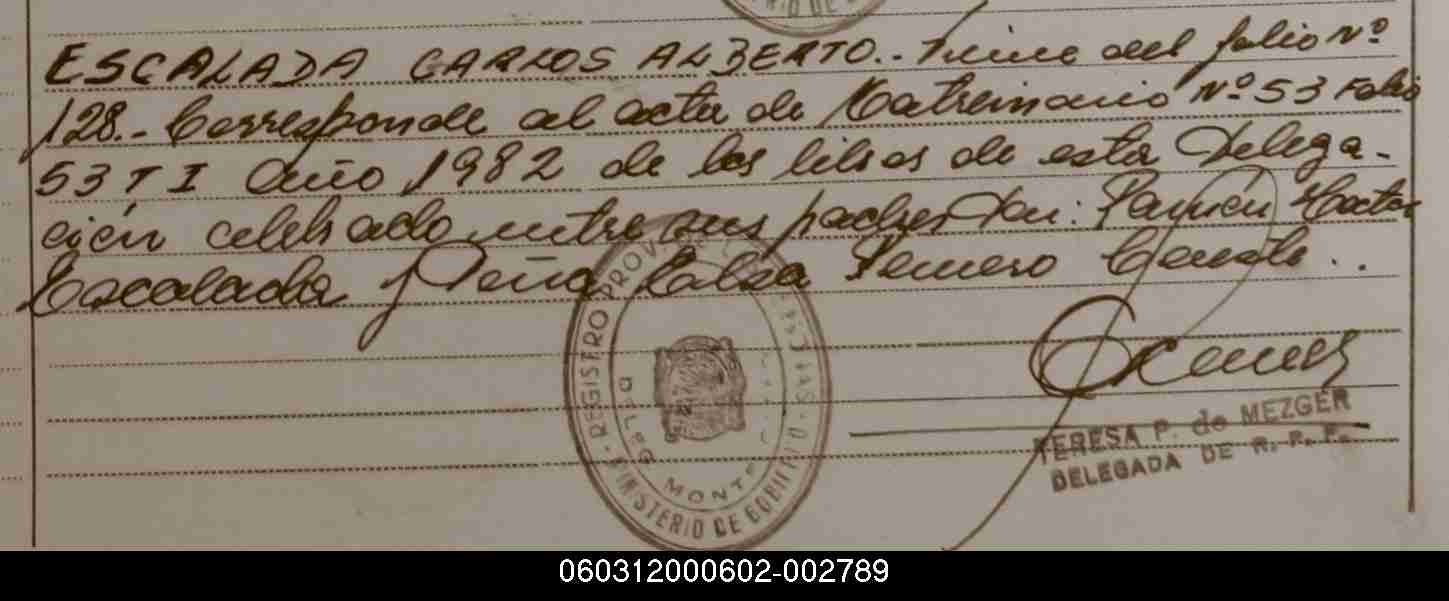 ESCALADA CARLOS ALBERTO.- Viene del folio Nº
128.- Corresponde al acta de Matrimonio Nº 53 Folio
53 T I Año 1982 de los libros de esta Delega-
ción celebrado entre sus padres Don: Ramón Hector
Escalada y Doña Elsa Romero
REGISTRO PROV
MINISTERIO DE GOBIERNO
DELEG
MONTE
TERESA P. de MEZGER
DELEGADA DE R. P. P.
060312000602-002789